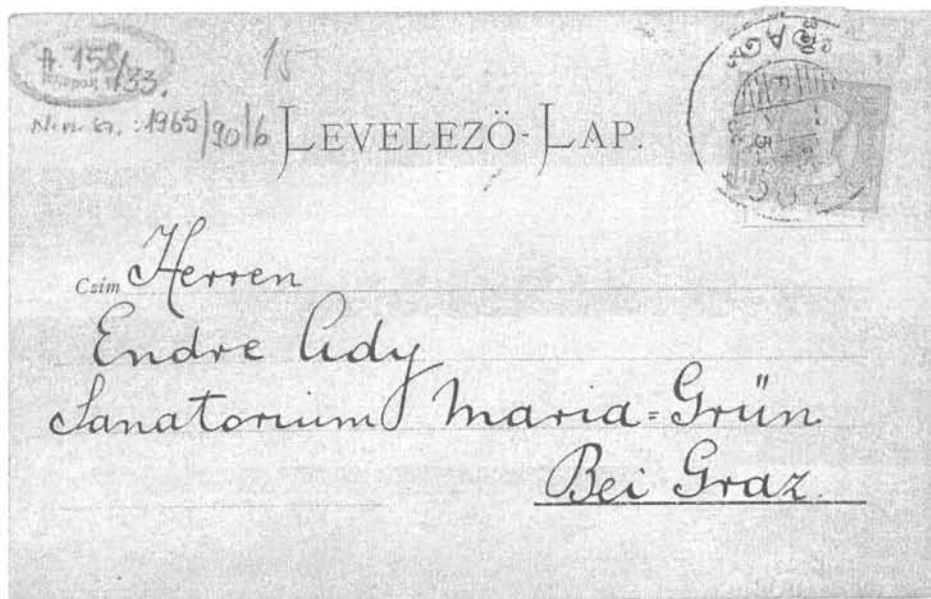 A. 158/33.
15
N.n. sz.: 1965/90/6
LEVELEZŐ-LAP.
Czim Herren
Endre Ady
Sanatorium Maria=Grün
Bei Graz.